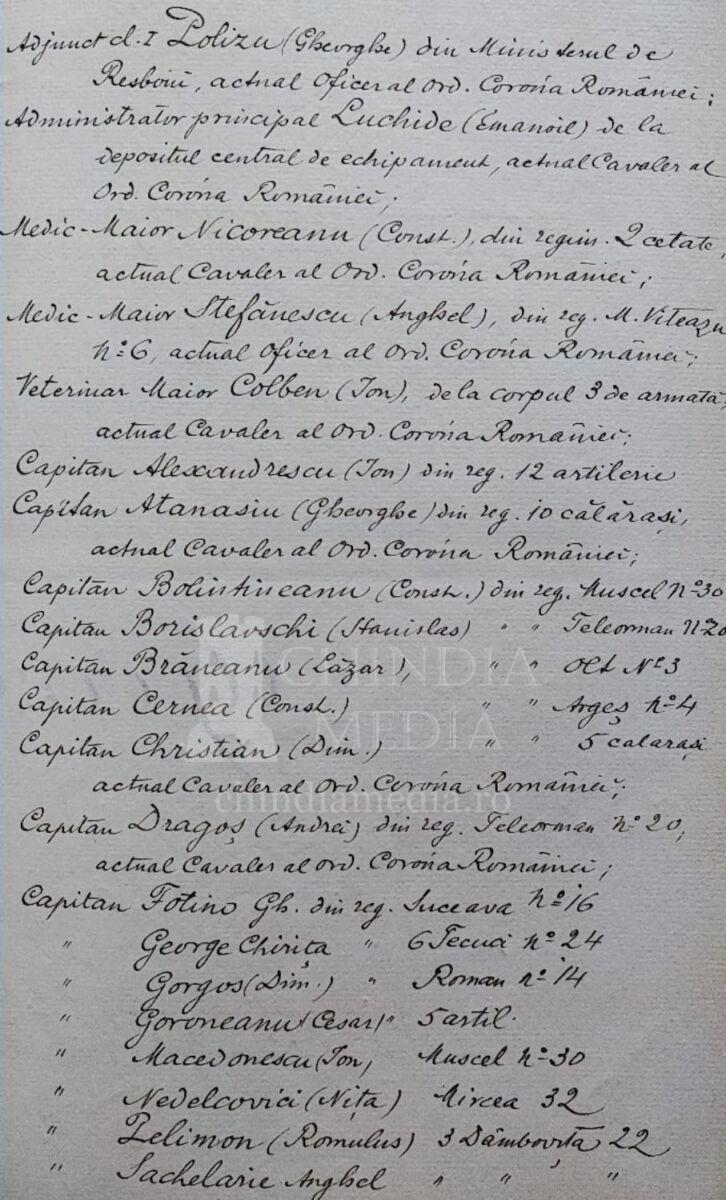 Adjunct cl. I Polizu (Gheorghe) din Ministerul de
Resboiu, actual Oficer al Ord. Coróna României;
Administrator principal Luchide (Emanoil) de la
depositul central de echipament, actual Cavaler al
Ord. Coróna României;
Medic-Maior Nicoreanu (Const.), din regim. 2 cetate,
actual Cavaler al Ord. Coróna României;
Medic-Maior Stefănescu (Anghel), din reg. M. Viteazu
No. 6, actual Oficer al Ord. Coróna României;
Veterinar Maior Colben (Ion), de la corpul 3 de armată
actual Cavaler al Ord. Coróna României;
Capitan Alexandrescu (Ion) din reg. 12 artilerie
Capitan Atanasiu (Gheorghe) din reg. 10 călărași,
actual Cavaler al Ord. Coróna României;
Capitan Bolintineanu (Const.) din reg. Muscel No. 30
Capitan Borislavschi (Stanislas) " " Teleorman No. 20
Capitan Brăneanu (Lazăr), " " Olt No. 3
Capitan Cernea (Const.) " " Argeș No. 4
Capitan Christian (Dim.) " " 5 calarași
actual Cavaler al Ord. Coróna României;
Capitan Dragoș (Andrei) din reg. Teleorman No. 20,
actual Cavaler al Ord. Coróna României;
Capitan Fotino Gh. din reg. Suceava No. 16
" George Chirița " 6 Tecuci No. 24
" Gorgos (Dim.) " Roman No. 14
" Goroneanu (Cesar) " 5 artil.
" Macedonescu (Ion) Muscel No. 30
" Nedelcovici (Nița) Mircea 32
" Zelimon (Romulus) 3 Dâmbovița 22
" Sachelarie Anghel " " "
CHINDIA
MEDIA
chindiamedia.ro